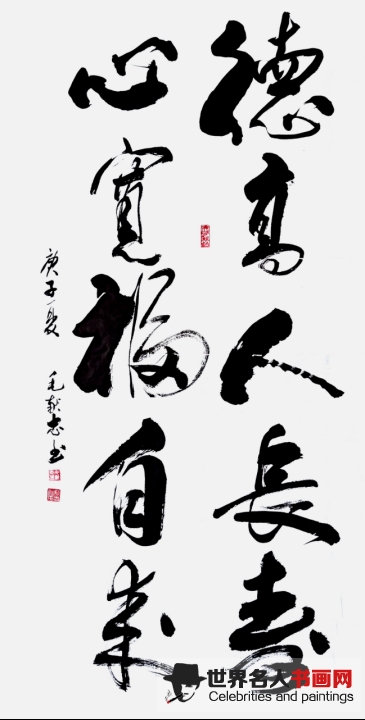 德高人長寿
心寬福自来
庚子夏
毛新志书
世界名人书画网
Celebrities and paintings